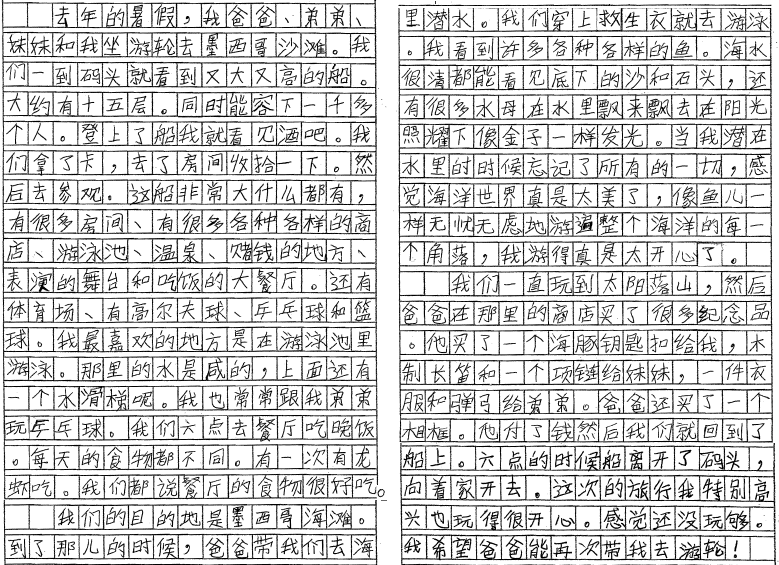 去年的暑假，我爸爸、弟弟、
妹妹和我坐游轮去墨西哥沙滩。我
们一到码头就看到又大又高的船。
大约有十五层。同时能容下一千多
个人。登上了船我就看见酒吧。我
们拿了卡，去了房间收拾一下。然
后去参观。这船非常大什么都有，
有很多房间、有很多各种各样的商
店、游泳池、温泉、赌钱的地方、
表演的舞台和吃饭的大餐厅。还有
体育场、有高尔夫球、乒乓球和篮
球。我最喜欢的地方是在游泳池里
游泳。那里的水是咸的，上面还有
一个水滑梯呢。我也常常跟我弟弟
玩乒乓球。我们六点去餐厅吃晚饭
。每天的食物都不同。有一次有龙
虾吃。我们都说餐厅的食物很好吃。
我们的目的地是墨西哥海滩。
到了那儿的时候，爸爸带我们去海
里潜水。我们穿上救生衣就去游泳
。我看到许多各种各样的鱼。海水
很清都能看见底下的沙和石头，还
有很多水母在水里飘来飘去在阳光
照耀下像金子一样发光。当我潜在
水里时时候忘记了所有的一切，感
觉海洋世界真是太美了，像鱼儿一
样无忧无虑地游遍整个海洋的每一
个角落，我游得真是太开心了。
我们一直玩到太阳落山，然后
爸爸在那里的商店买了很多纪念品
。他买了一个海豚钥匙扣给我，木
制长笛和一个项链给妹妹，一件衣
服和弹弓给弟弟。爸爸还买了一个
相框。他付了钱然后我们就回到了
船上。六点的时候船离开了码头，
向着家开去。这次的旅行我特别高
兴也玩得很开心。感觉还没玩够。
我希望爸爸能再次带我去游轮！